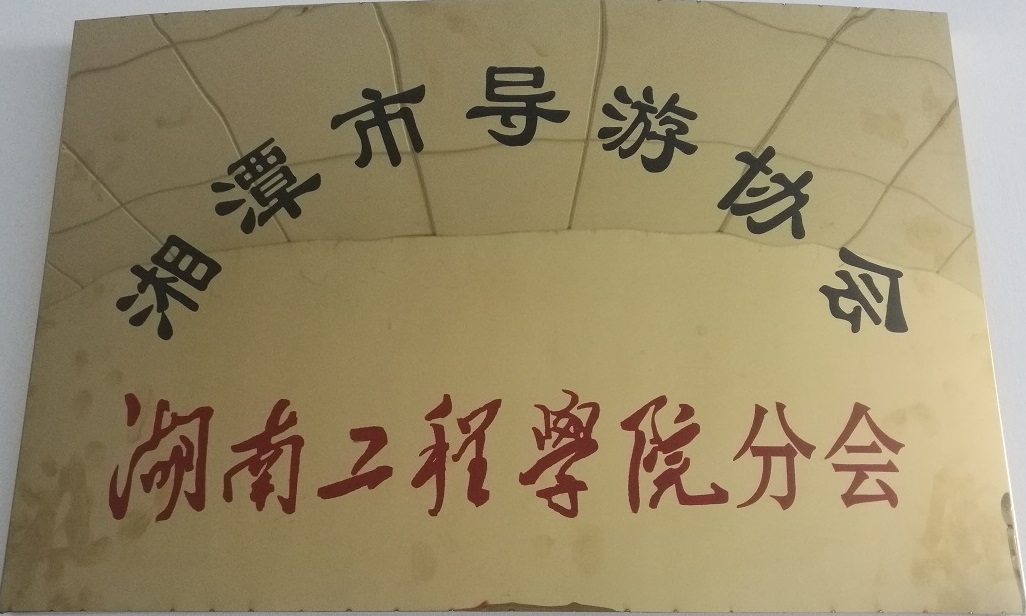 湘潭市导游协会
湖南工程學院分会